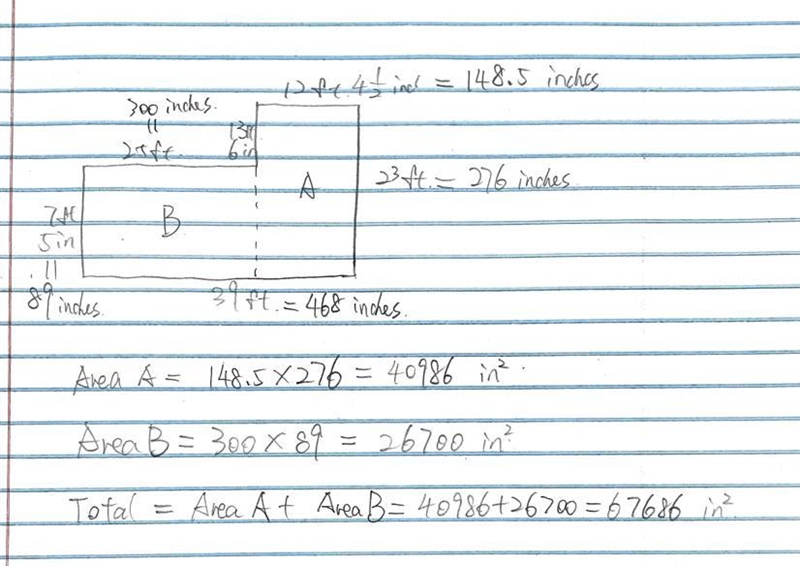 12 ft. 4 1/2 inch = 148.5 inches
300 inches.
||
25 ft.
13 ft
6 in
A
23 ft. = 276 inches
7 ft
5 in
||
89 inches.
B
39 ft. = 468 inches.
Area A = 148.5 × 276 = 40986 in².
Area B = 300 × 89 = 26700 in².
Total = Area A + Area B = 40986+26700 = 67686 in².